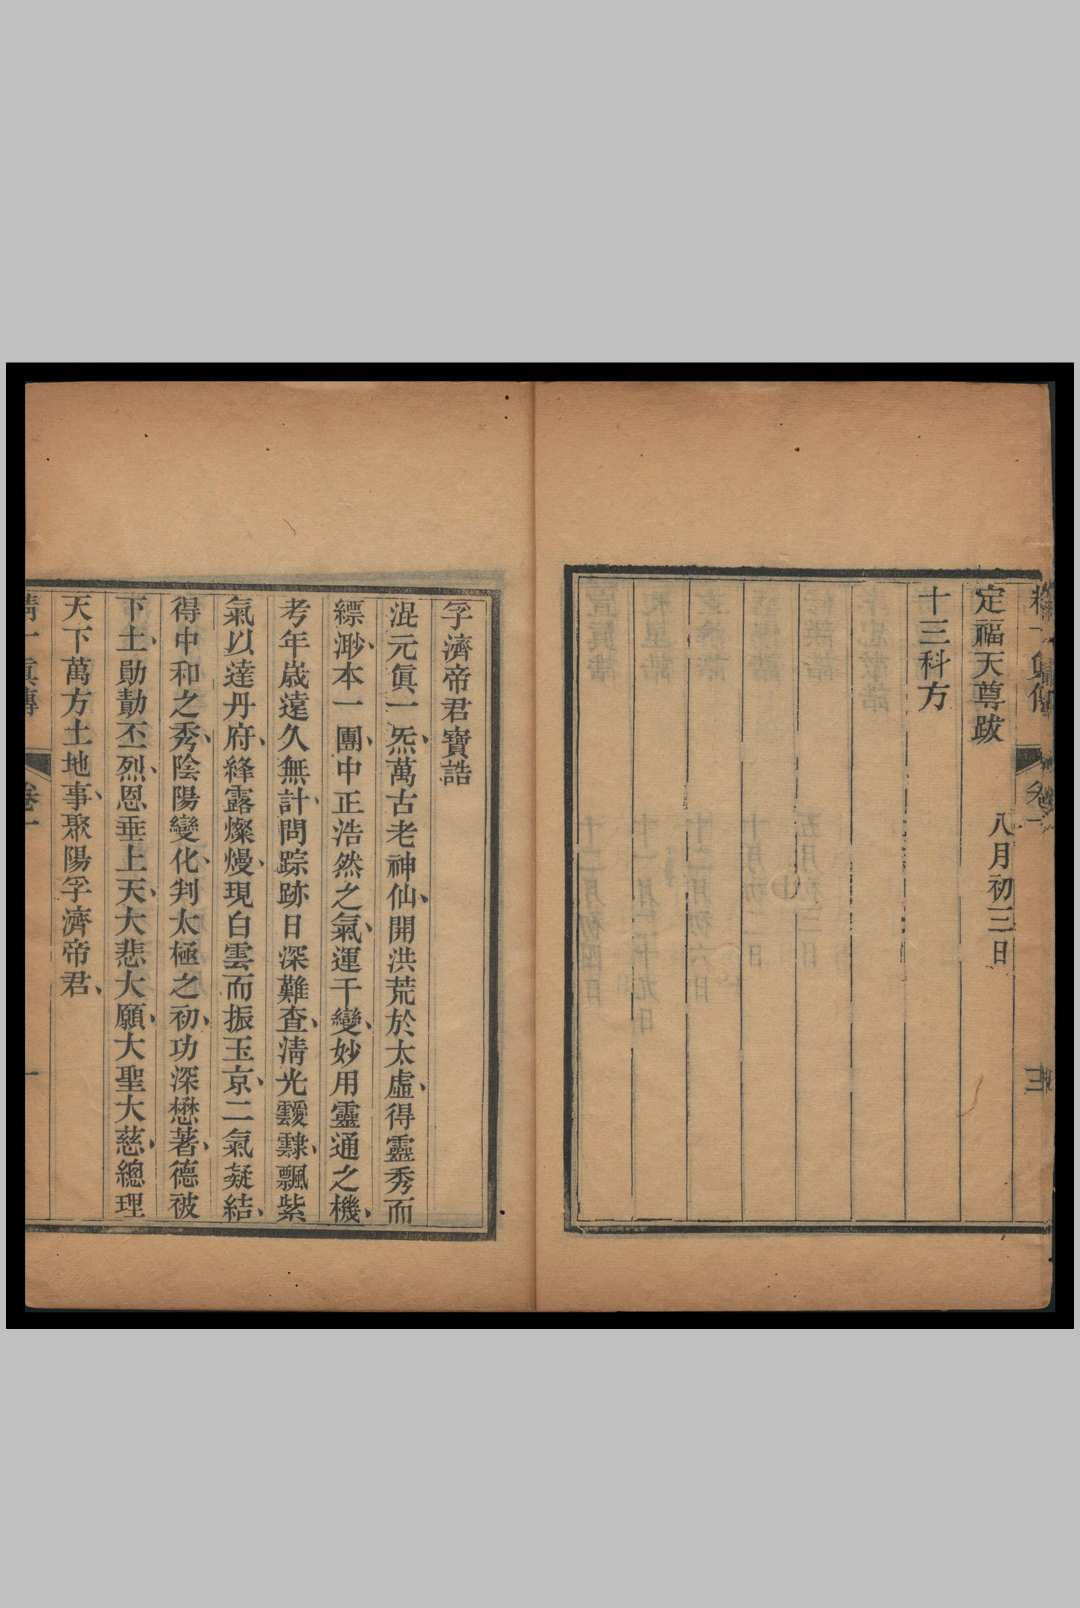 定福天尊跋 八月初三日
十三科方
孚濟帝君寶誥
混元眞一、炁萬古老神仙、開洪荒於太虛、得靈秀而
縹渺、本一團、中正浩然之氣、運千變、妙用靈通之機、
考年歲遠久無計、問踪跡日深難查、淸光靉靆、飄紫
氣以達丹府、絳露燦熳、現白雲而振玉京、二氣凝結、
得中和之秀、陰陽變化、判太極之初、功深懋著、德被
下土、勛勣丕烈、恩垂上天、大悲大願、大聖大慈、總理
天下萬方土地事、聚陽孚濟帝君、
卷一
一